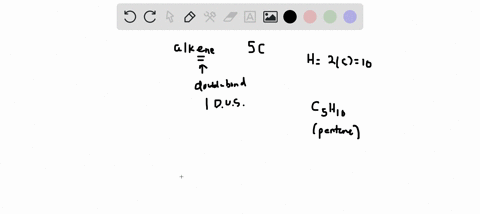 alkene 5C
H = 2(c)=10
double-bond
1 D.U.S.
C5H10
(pentene)